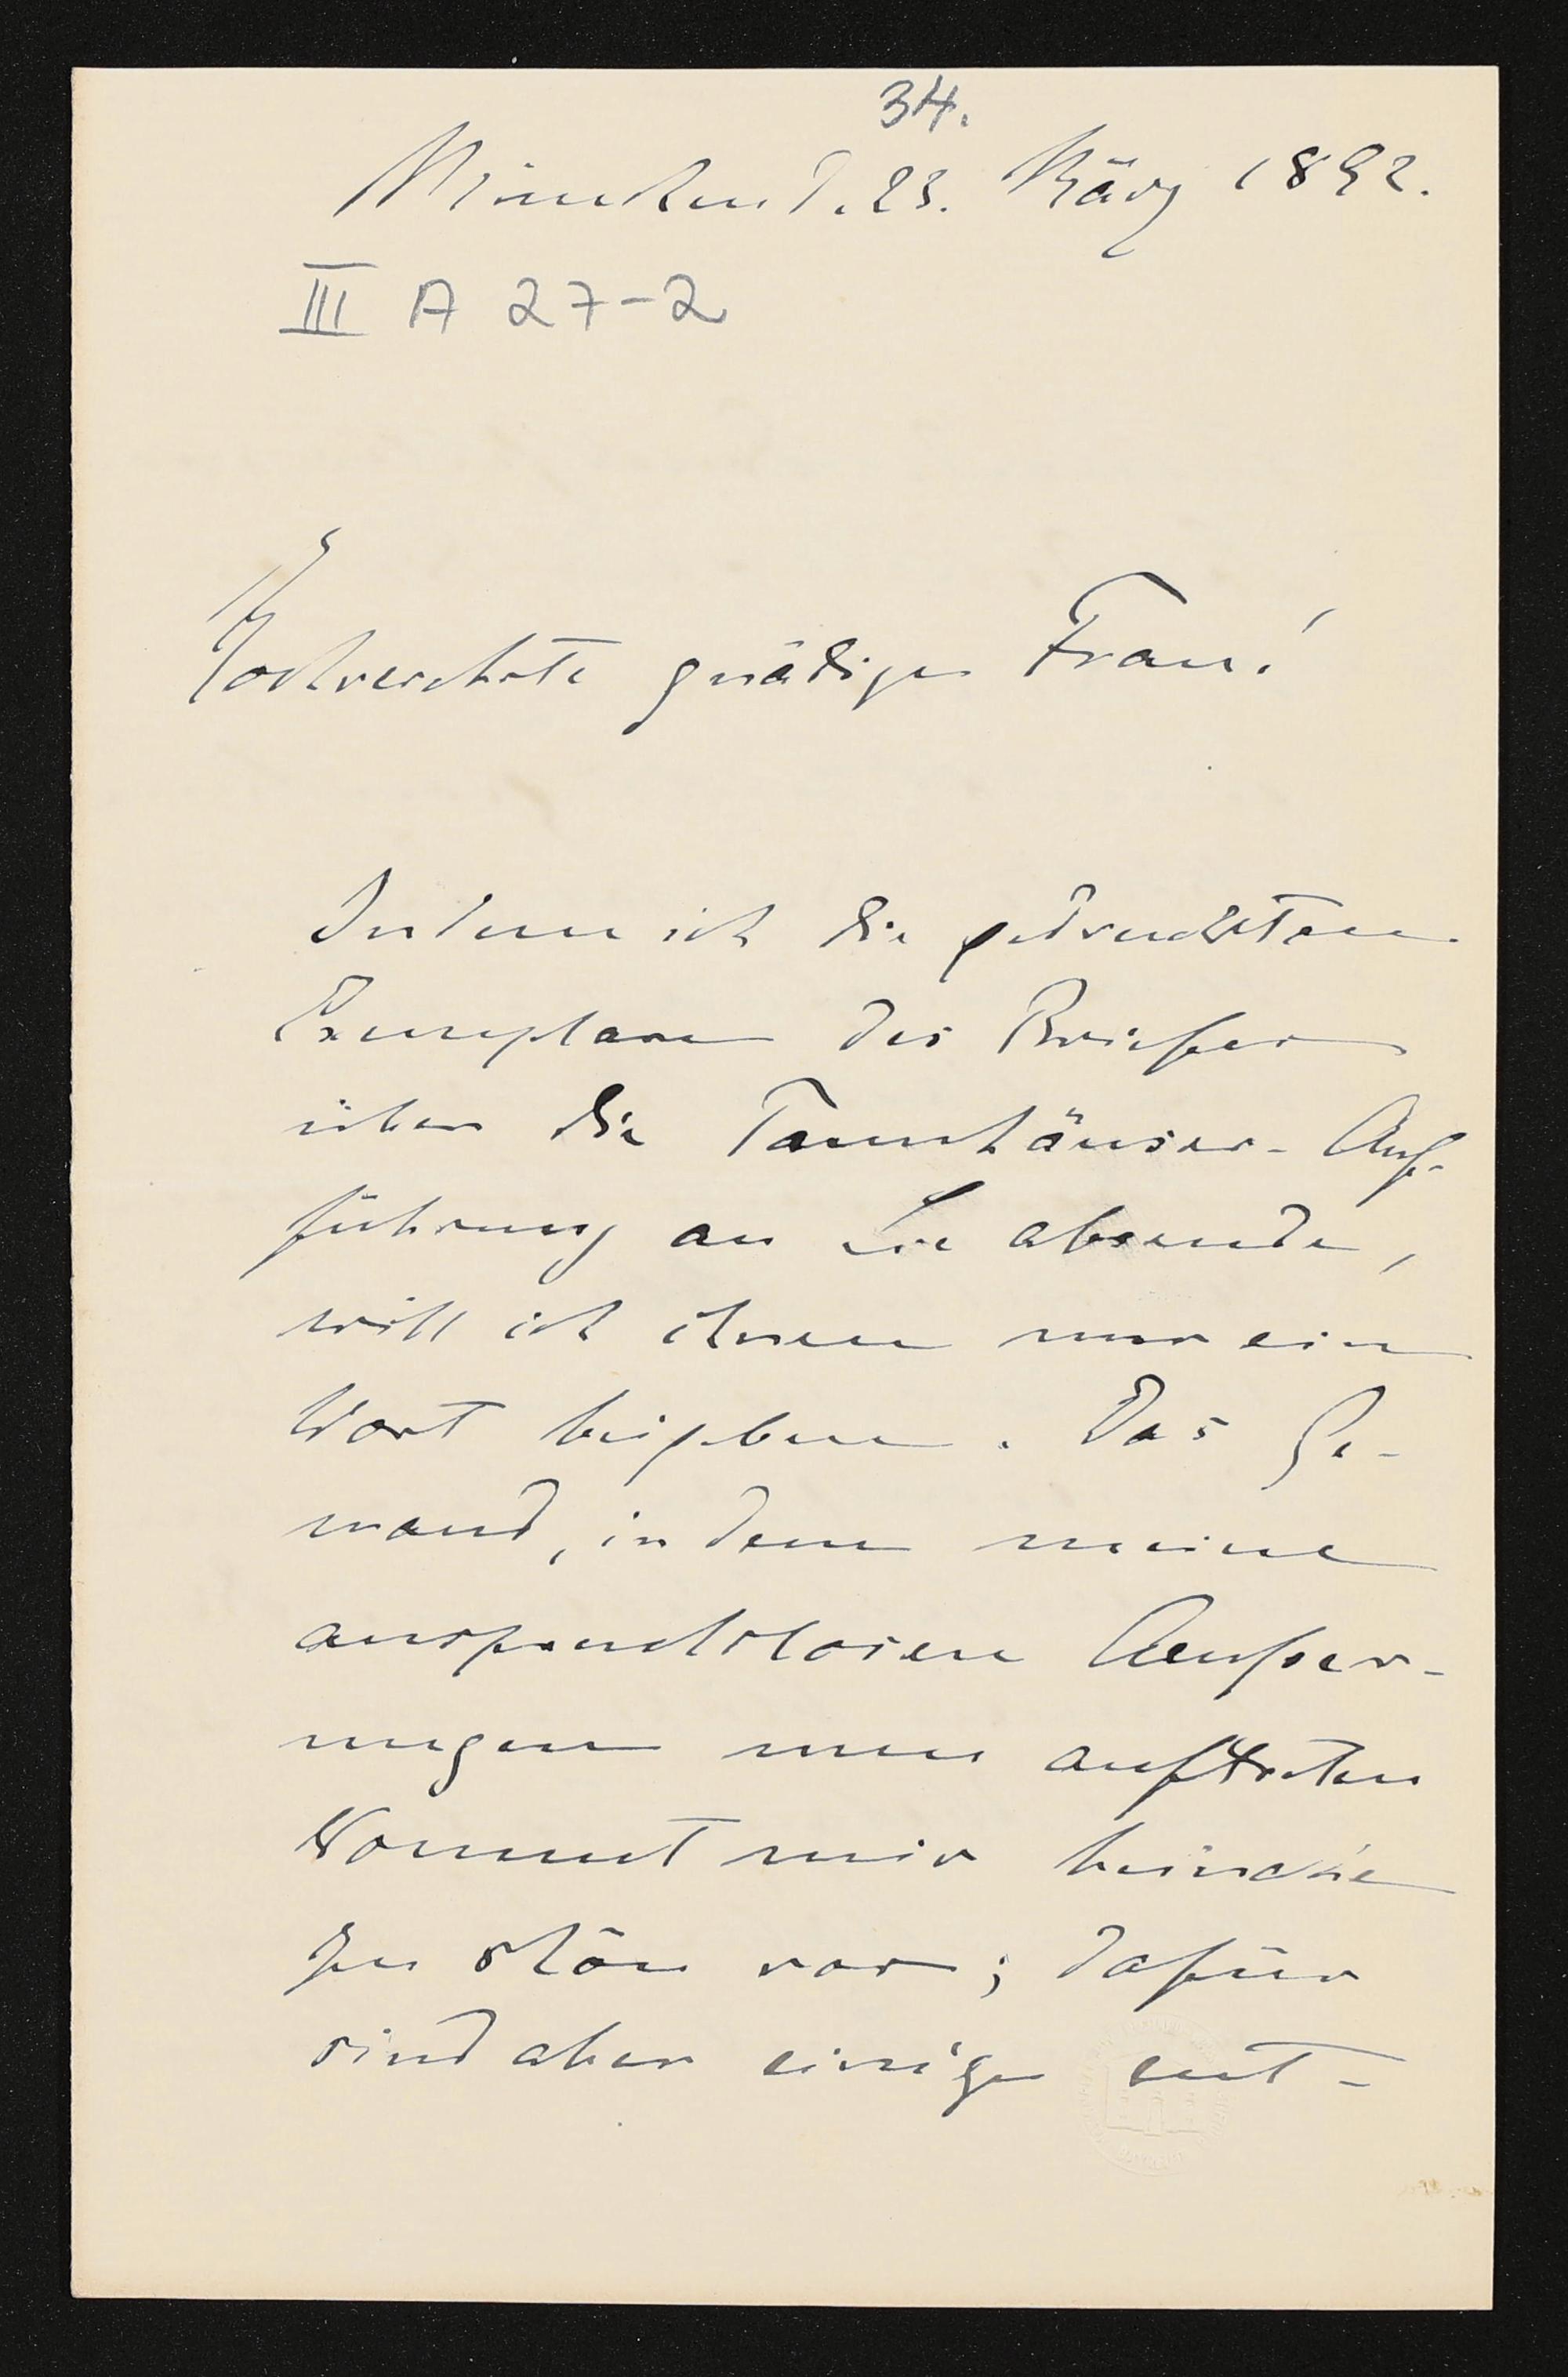 34.
München d. 23. März 1892.
III A 27-2
Hochverehrte gnädige Frau!
Indem ich die gedruckten
Exemplare des Briefes
über die Tannhäuser-Auf-
führung an Sie absende,
will ich ihnen nur ein
Wort beigeben. Das Ge-
wand, in dem meine
anspruchslosen Aeußer-
ungen nun auftreten
kommt mir beinahe
zu schön vor; dafür
sind aber einige ent-